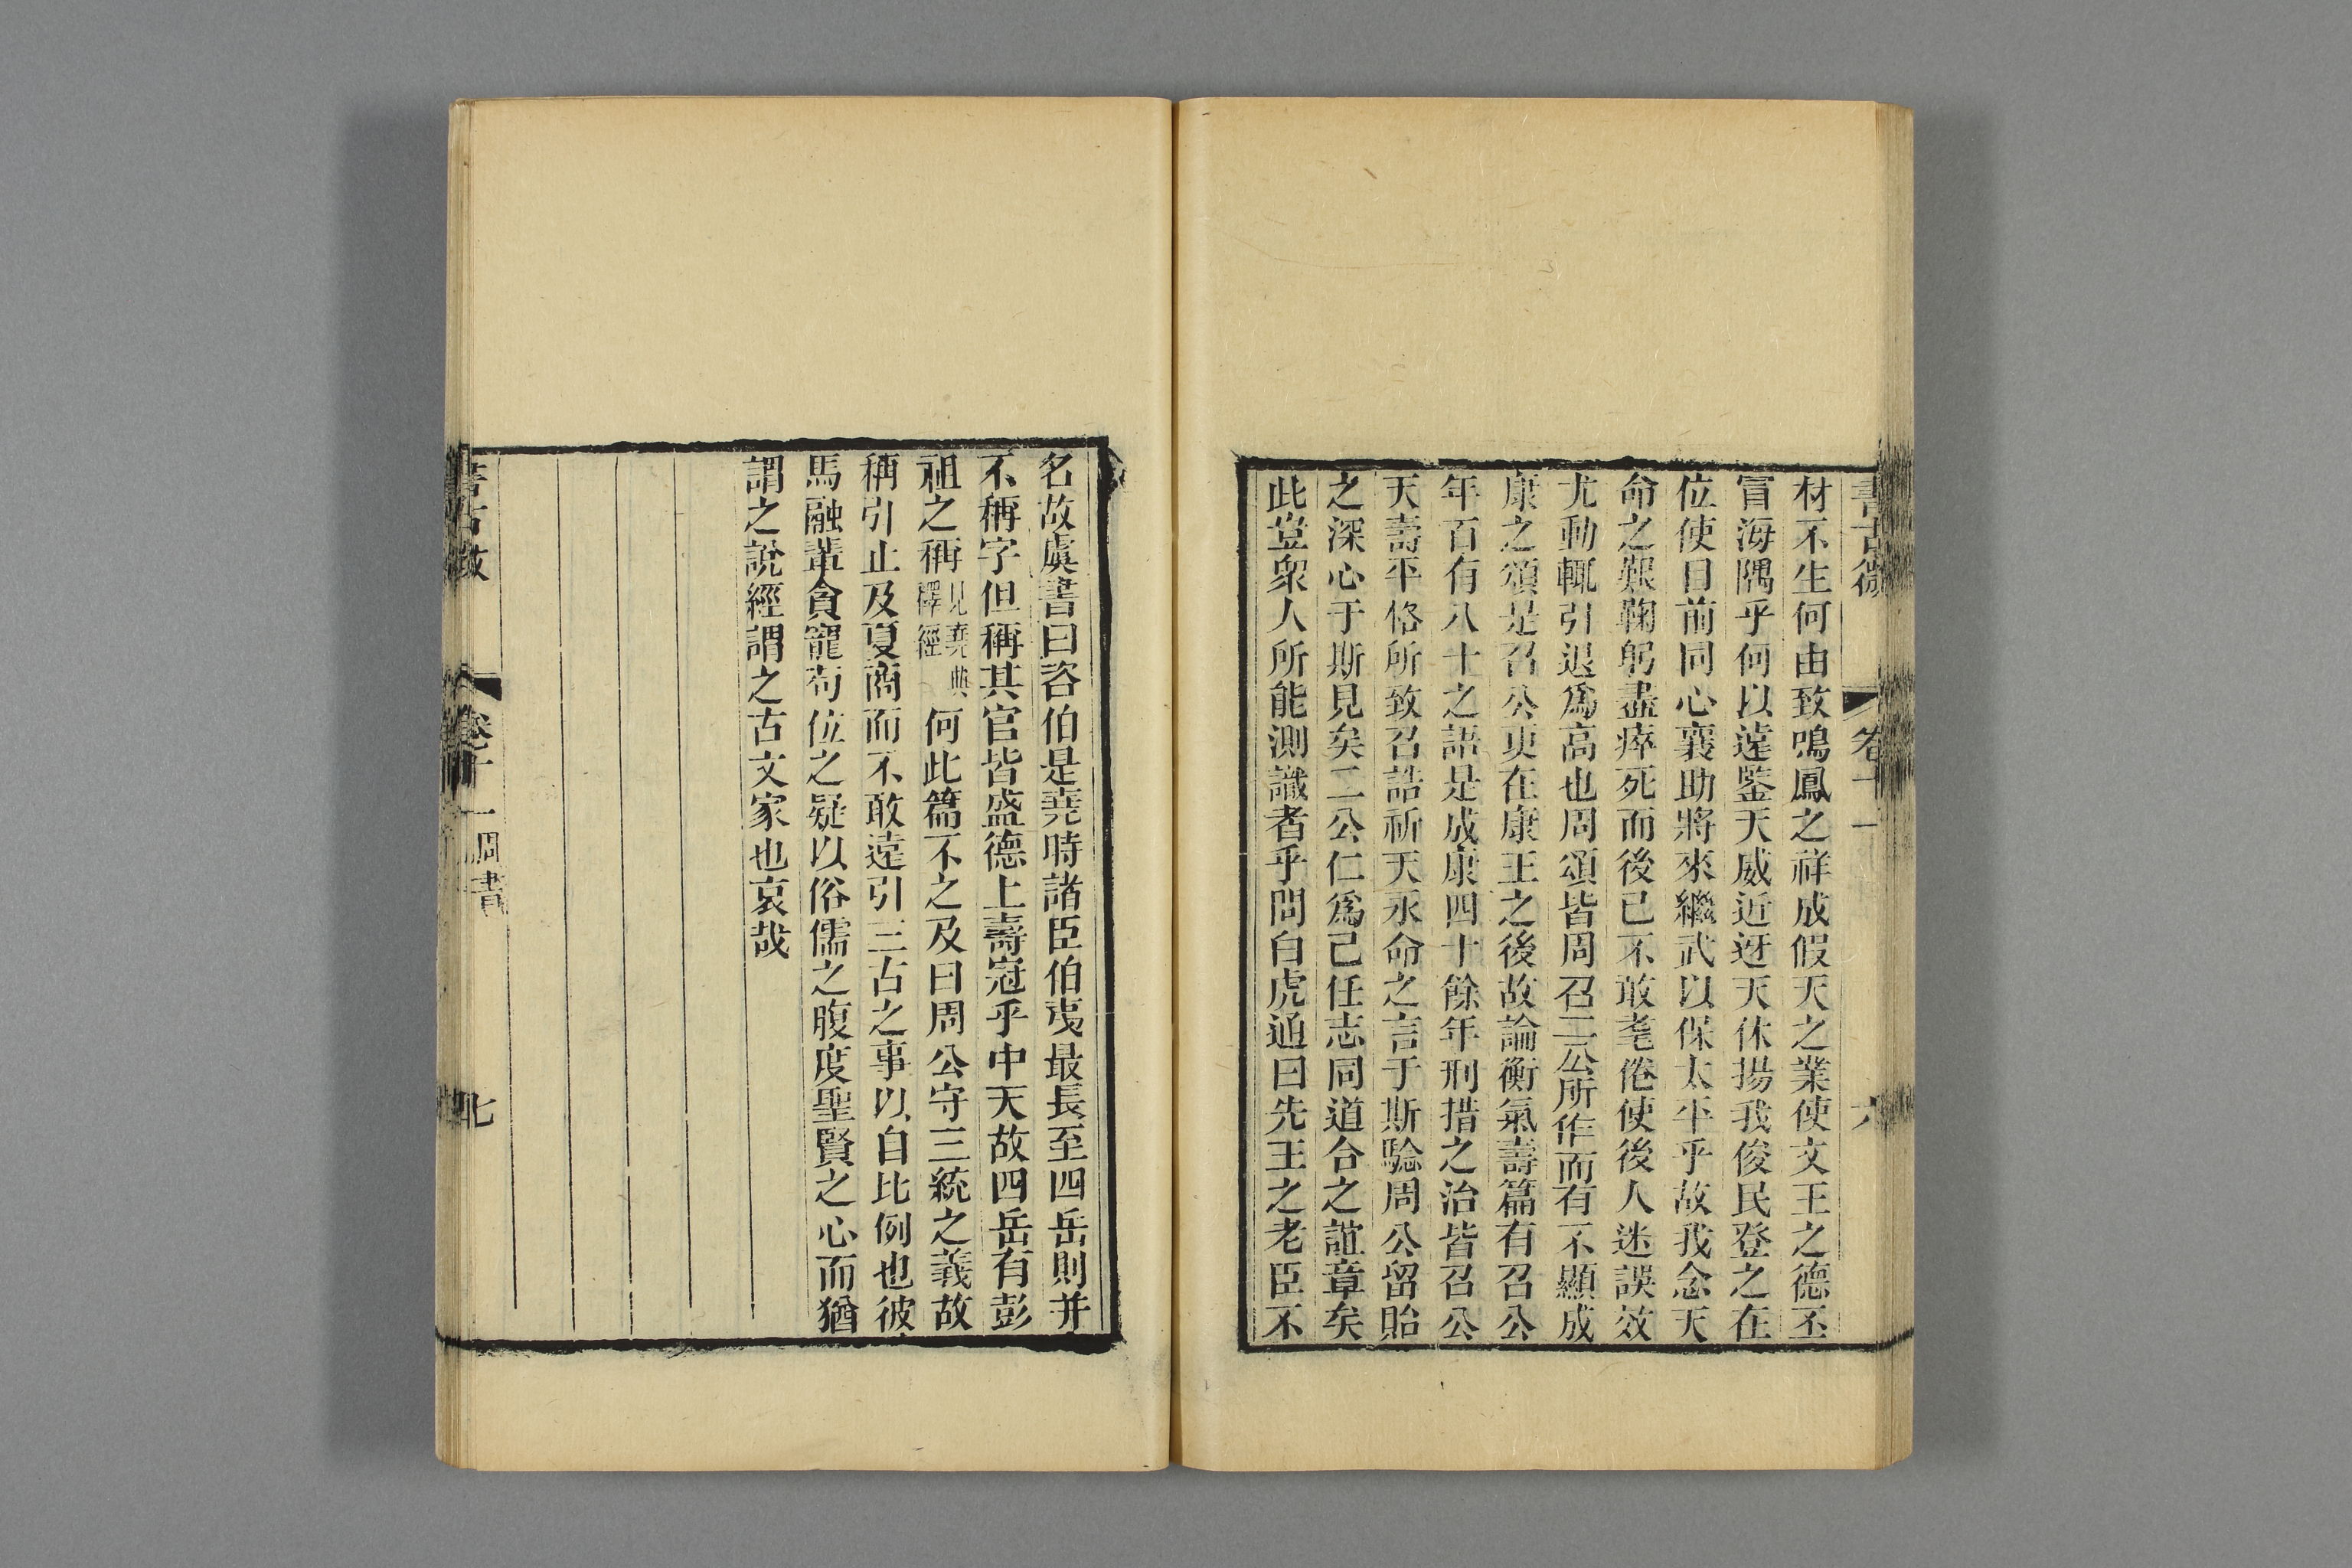 書古微
卷十一
六
材不生何由致鳴鳳之祥成假天之業使文王之德丕
冒海隅乎何以遠鑒天威近迓天休揚我俊民登之在
位使目前同心襄助將來繼武以保太平乎故我念天
命之艱鞠躬盡瘁死而後已不敢耄倦使後人迷誤效
尤動輒引退爲高也周頌皆周召二公所作而有不顯成
康之頌是召公更在康王之後故論衡氣壽篇有召公
年百有八十之語是成康四十餘年刑措之治皆召公
天壽平格所致召誥祈天永命之言于斯驗周公留貽
之深心于斯見矣二公仁爲己任志同道合之誼章矣
此豈衆人所能測識者乎問白虎通曰先王之老臣不
名故虞書曰咨伯是堯時諸臣伯夷最長至四岳則并
不稱字但稱其官皆盛德上壽冠乎中天故四岳有彭
祖之稱見堯典釋經何此篇不之及曰周公守三統之義故
稱引止及夏商而不敢遠引三古之事以自比例也彼
馬融輩貪寵苟位之疑以俗儒之腹度聖賢之心而猶
謂之說經謂之古文家也哀哉
書古微
卷十一
周書
七